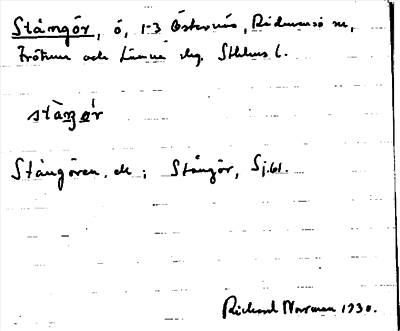 Stångör, ö, 1-3 Östernäs, Rådmansö sn,
Frötuna och Länna skg. Sthlms l.
stàŋør
Stångören, ek; Stångör, Sj.61.
Richard Norrman 1930.